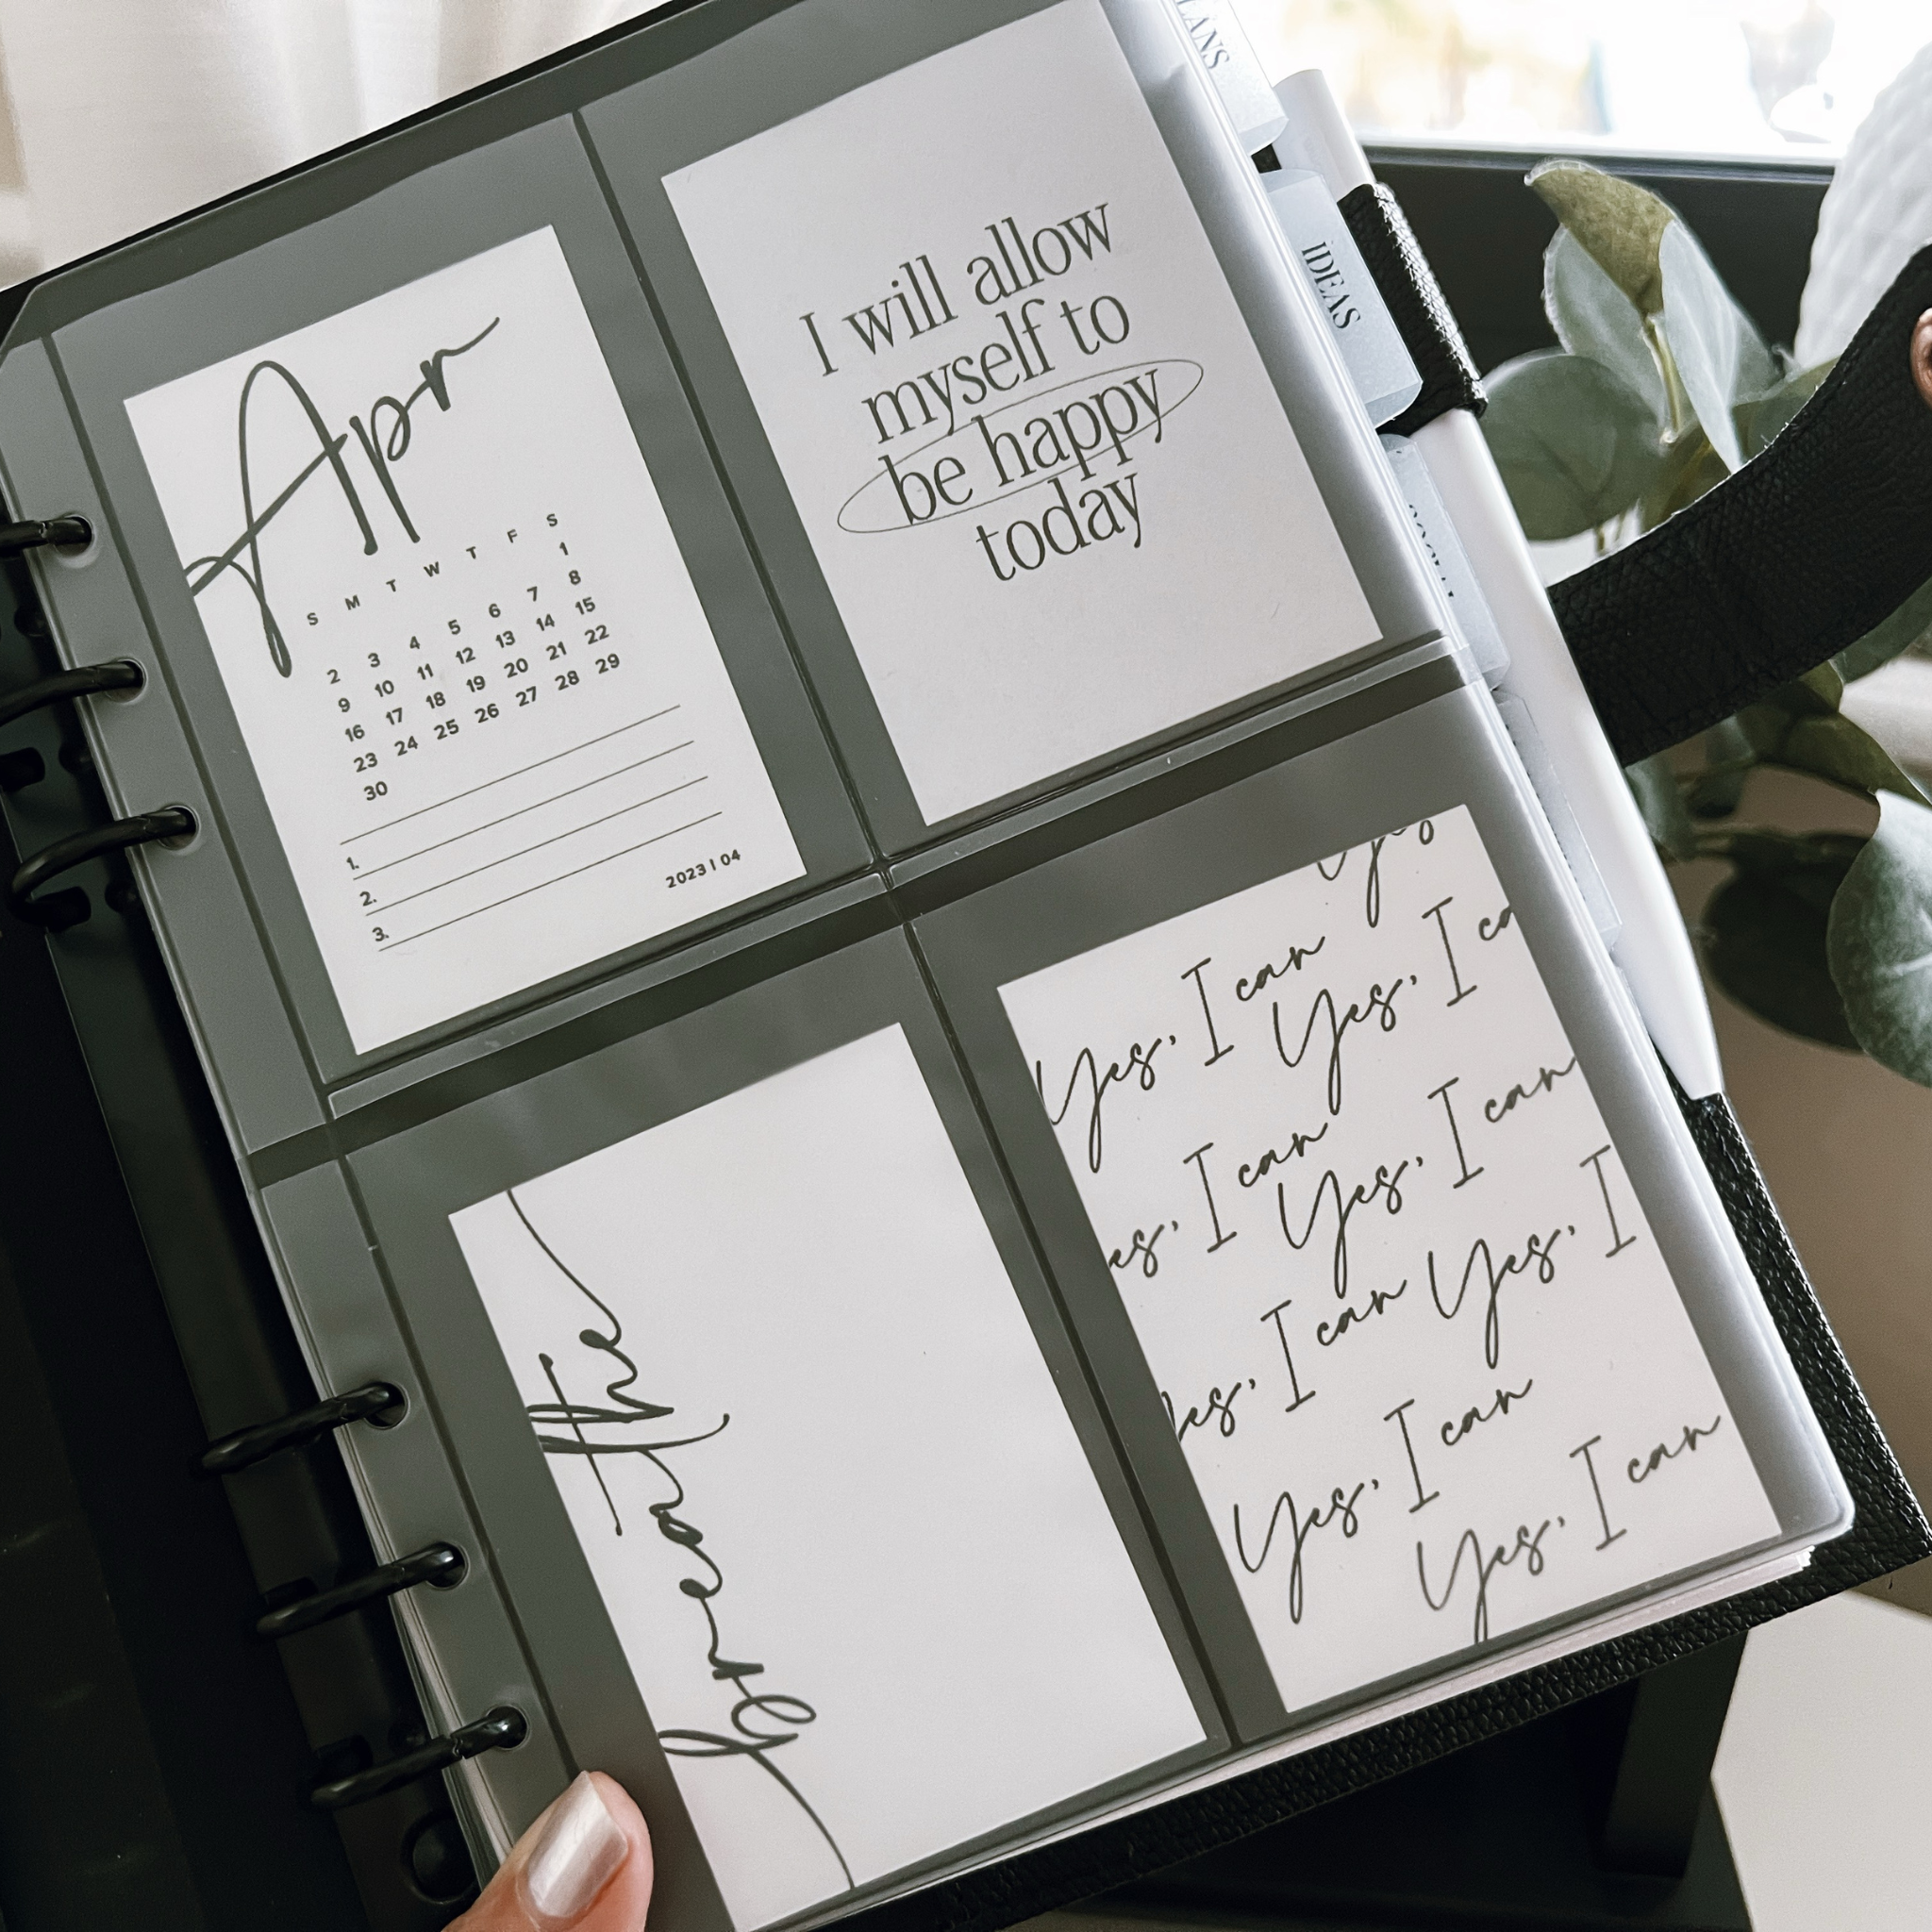 Apr
S M T W T F S
1
2 3 4 5 6 7 8
9 10 11 12 13 14 15
16 17 18 19 20 21 22
23 24 25 26 27 28 29
30
1.
2.
3.
2023 | 04
I will allow
myself to
be happy
today
LANS
IDEAS
Yes, I can
Yes, I ca
es, I can
Yes, I can
es, I can Yes, I
Yes, I can
Yes, I can